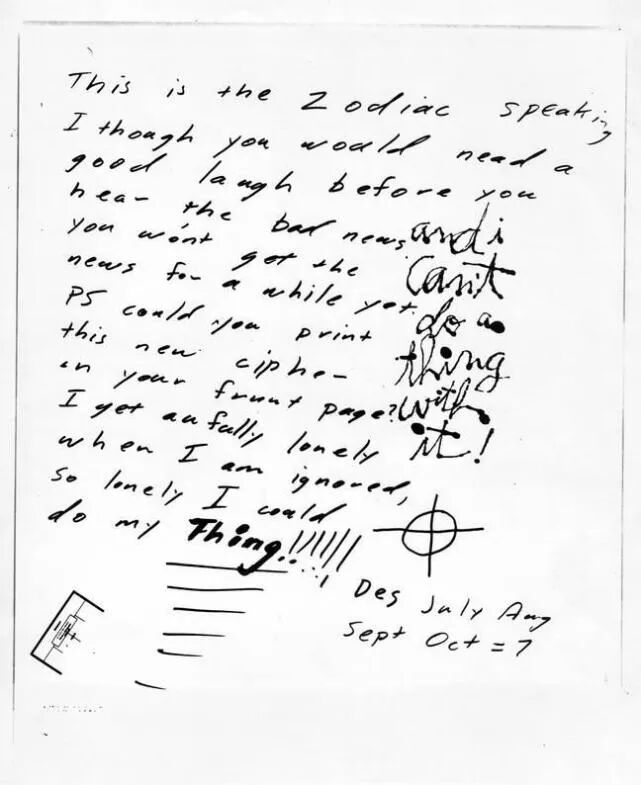 This is the Zodiac speaking
I though you would nead a
good laugh before you
hear the bad news
you won't get the
news for a while yet.
PS could you print
this new cipher
in your frunt page?
I get awfully lonely
when I am ignored,
so lonely I could
do my Thing!!!!!!
and i
can't
do a
thing
with
it!
Des July Aug
Sept Oct = 7